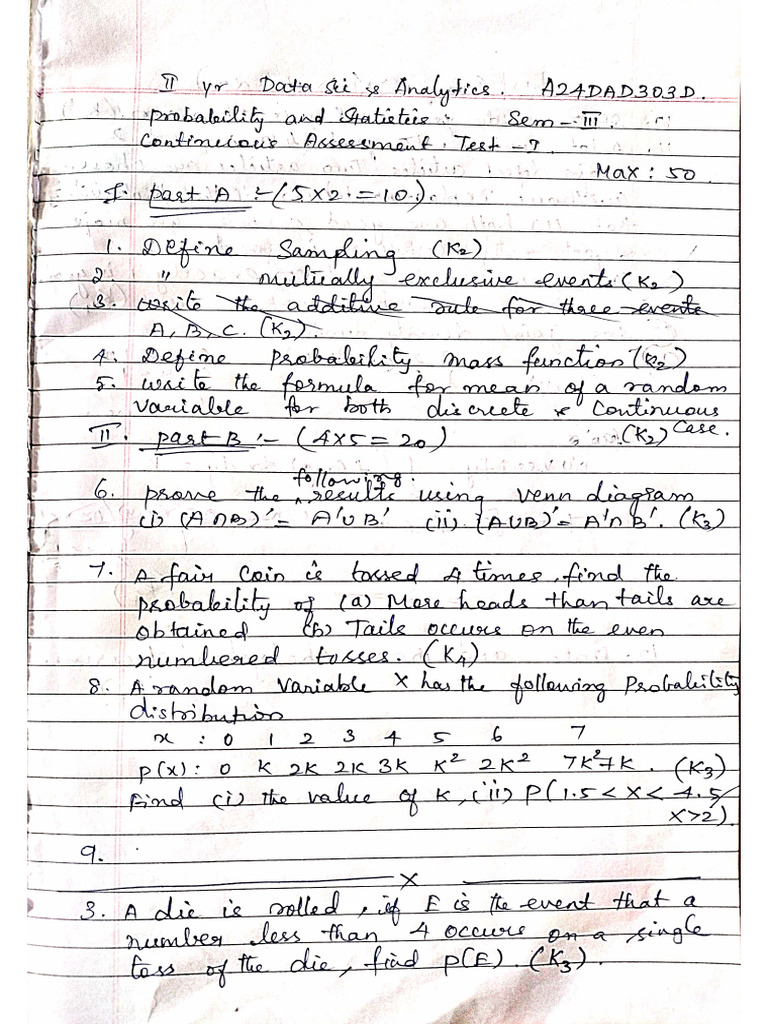 II yr Data Sci & Analytics. A24DAD303D.
probability and Statistics. Sem-III.
Continuous Assessment Test-I
Max: 50
I. part A :- (5x2=10).
1. Define Sampling (K2)
2 " mutually exclusive events (K2)
3. write the additive rule for three events
A, B, C. (K2).
4. Define probability mass function (K2)
5. write the formula for mean of a random
variable for both discrete & Continuous
(K2) Case.
II. part B :- (4x5=20)
following
6. prove the results using venn diagram
(i) (A∩B)'= A'∪B' (ii) (A∪B)'=A'∩B'. (K3)
7. A fair coin is tossed 4 times, find the
probability of (a) More heads than tails are
obtained (b) Tails occurs on the even
numbered tosses. (K4)
8. A random variable X has the following Probability
distribution
x : 0 1 2 3 4 5 6 7
p(x): 0 K 2K 2K 3K K² 2K² 7K²+K. (K3)
Find (i) the value of K, (ii) P(1.5<X<4.5/
X>2).
9.
X
3. A die is rolled, if E is the event that a
number less than 4 occurs on a single
toss of the die, find p(E). (K3).